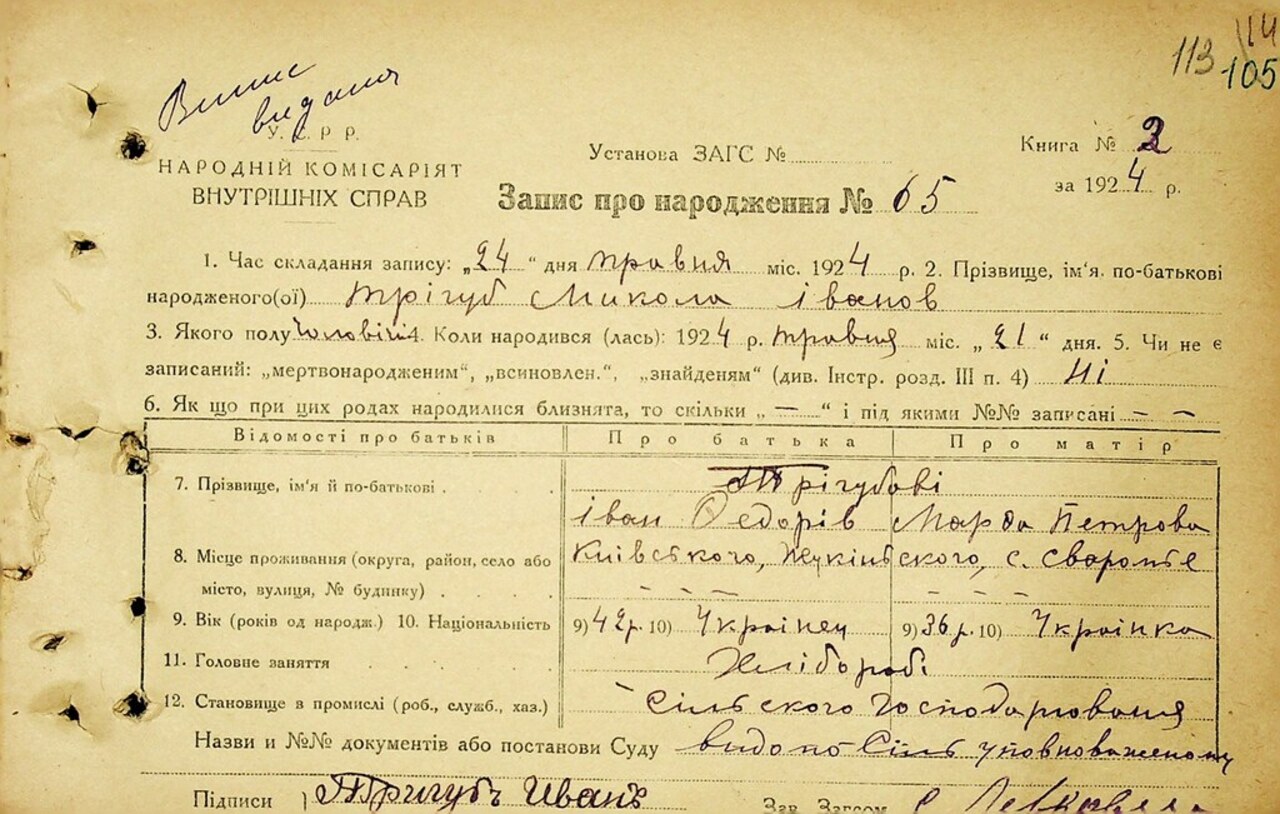 113 114
105
Випис
видана
У. С. Р Р.
НАРОДНІЙ КОМІСАРІЯТ
ВНУТРІШНІХ СПРАВ
Установа ЗАГС №
Книга № 2
за 1924 р.
Запис про народження № 65
1. Час складання запису: „24“ дня травня міс. 1924 р. 2. Прізвище, ім'я. по-батькові
народженого(ої) Трігуб Микола іванов
3. Якого полу чоловічі 4. Коли народився (лась): 1924 р. травня міс. „21“ дня. 5. Чи не є
записаний: „мертвонародженим“, „всиновлен.“, „знайденям“ (див. Інстр. розд. III п. 4) Ні
6. Як що при цих родах народилися близнята, то скільки „—“ і під якими №№ записані — —
Відомості про батьків Про батька Про матір
7. Прізвище, ім'я й по-батькові Трігубові
іван Федорів Марфа Петрова
8. Місце проживання (округа, район, село або Київського, Жукінського, с. Сваромье
місто, вулиця, № будинку) — — — — — —
9. Вік (років од народж.) 10. Національність 9) 42 р. 10) Українец 9) 36 р. 10) Українка
11. Головне заняття Хлібороб
12. Становище в промислі (роб., служб., хаз.) Сільского Господарювання
Назви и №№ документів або постанови Суду видопо Сіль уповноваженому
Підписи Тригубъ Иванъ Зав. Загсом